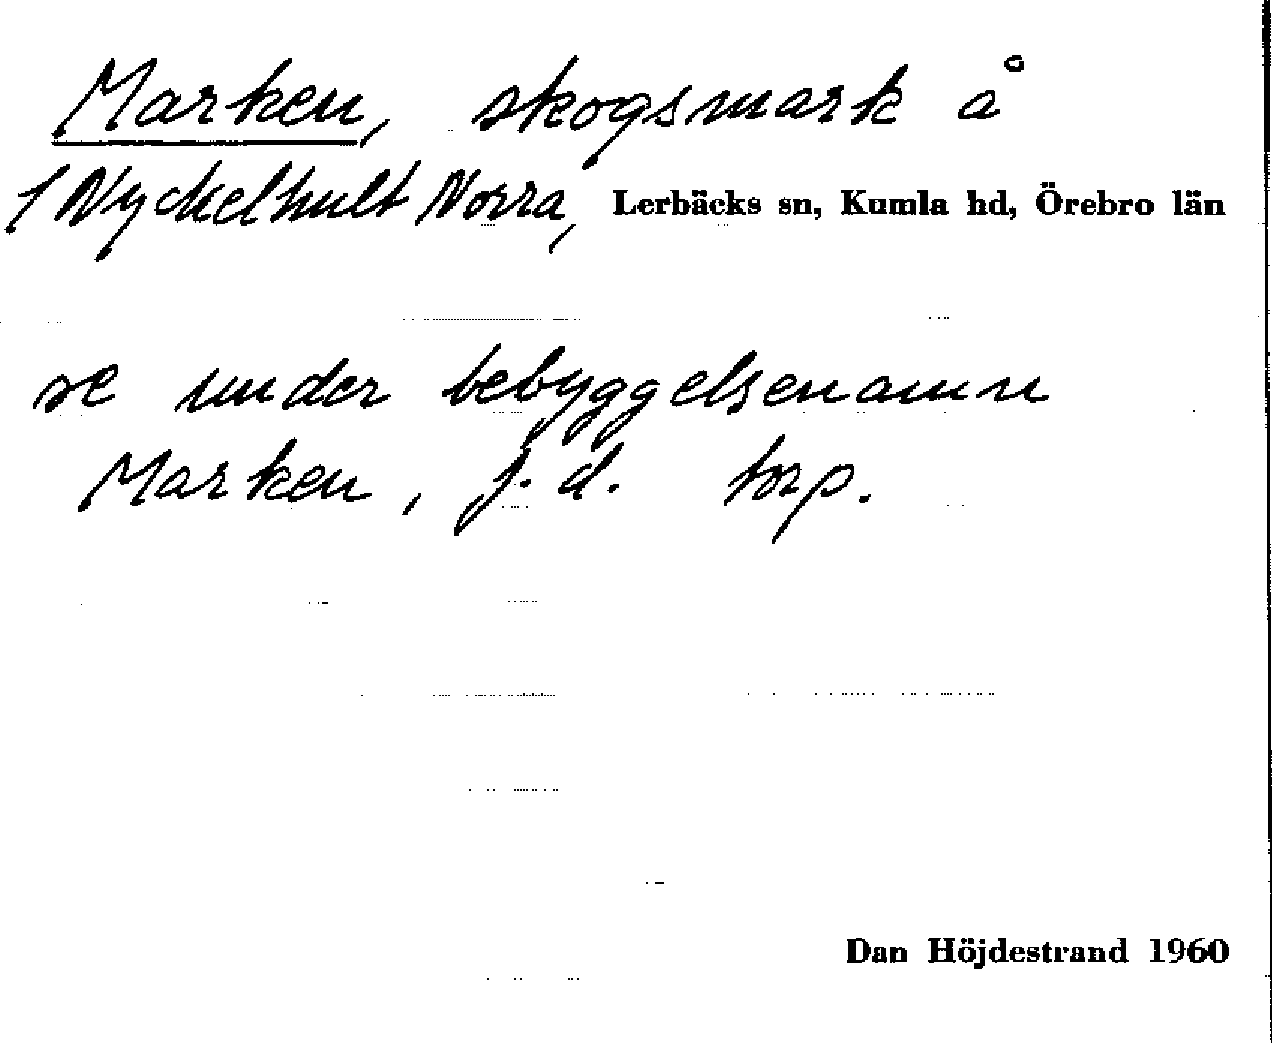 Marken, skogsmark å
/Nyckelhult Norra, Lerbäcks sn, Kumla hd, Örebro län
se under bebyggelsenamn
Marken, f.d. torp.
Dan Höjdestrand 1960